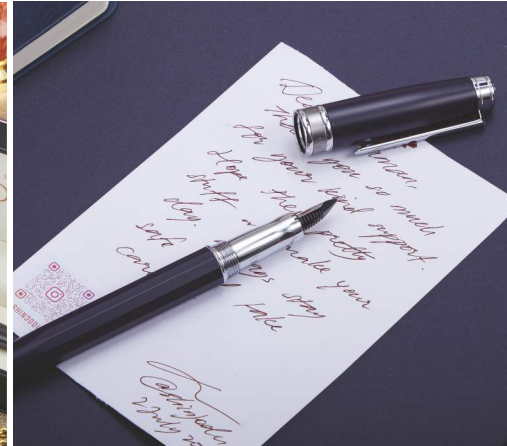 De
man,
you so much
for your kind support.
Hope the pretty
stuff make your
day. stay
safe take
car